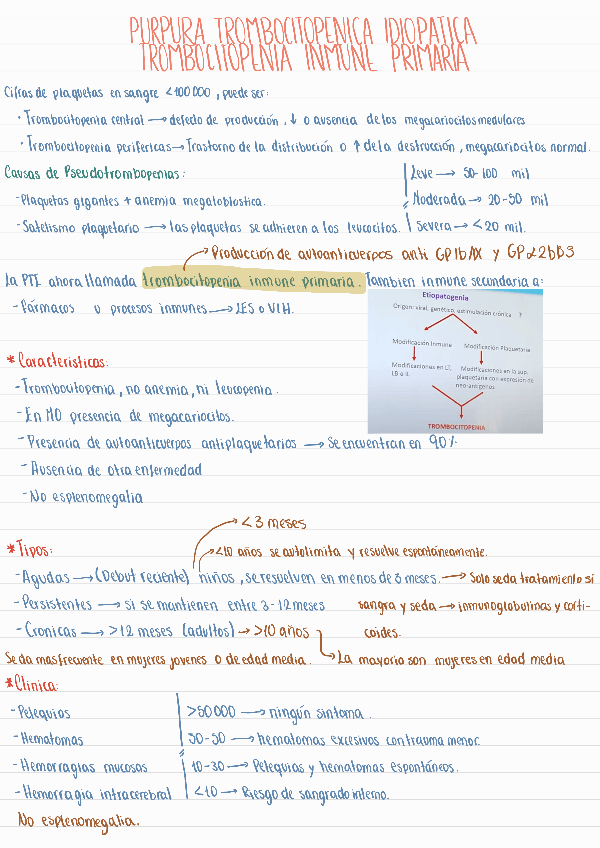 PURPURA TROMBOCITOPENICA IDIOPATICA
TROMBOCITOPENIA INMUNE PRIMARIA
Cifras de plaquetas en sangre <100 000, puede ser:
· Trombocitopenia central → defecto de producción, ↓ o ausencia de los megacariocitos medulares
· Trombocitopenia perifericas → Trastorno de la distribución o ↑ de la destrucción, megacariocitos normal.
Causas de Pseudotrombopenias:
- Plaquetas gigantes + anemia megaloblostica.
- Satetismo plaquetario → las plaquetas se adhieren a los leucocitos.
Leve → 50-100 mil
Moderada → 20-50 mil
Severa → <20 mil.
Producción de autoanticuerpos anti GP1b/IX y GPα2bB3
La PTI ahora llamada trombocitopenia inmune primaria. Tambien inmune secundaria a:
- Fármacos o procesos inmunes → LES o VIH.
Etiopatogenia
Origen: viral, genético, estimulación crónica ?
Modificación Inmune Modificación Plaquetaria
Modificaciones en LT, LB e IL
Modificaciones en la sup. plaquetaria con expresión de neo-antígenos
TROMBOCITOPENIA
* Caracteristicas:
- Trombocitopenia, no anemia, ni leucopenia.
- En MO presencia de megacariocitos.
- Presencia de autoanticuerpos antiplaquetarios → Se encuentran en 90%.
- Ausencia de otra enfermedad
- No esplenomegalia
<3 meses
* Tipos:
<10 años se autolimita y resuelve espontáneamente.
- Agudas → (Debut reciente) niños, se resuelven en menos de 3 meses. → Solo se da tratamiento si
- Persistentes → si se mantienen entre 3-12 meses
sangra y se da → inmunoglobulinas y corti-
- Cronicas → >12 meses (adultos) → >10 años
coides.
Se da mas frecuente en mujeres jovenes o de edad media. La mayoria son mujeres en edad media
* Clinica:
- Petequias
- Hematomas
- Hemorragias mucosas
- Hemorragia intracerebral
>50 000 → ningún sintoma.
30-50 → hematomas excesivos con trauma menor.
10-30 → Petequias y hematomas espontáneos.
<10 → Riesgo de sangrado interno.
No esplenomegalia.